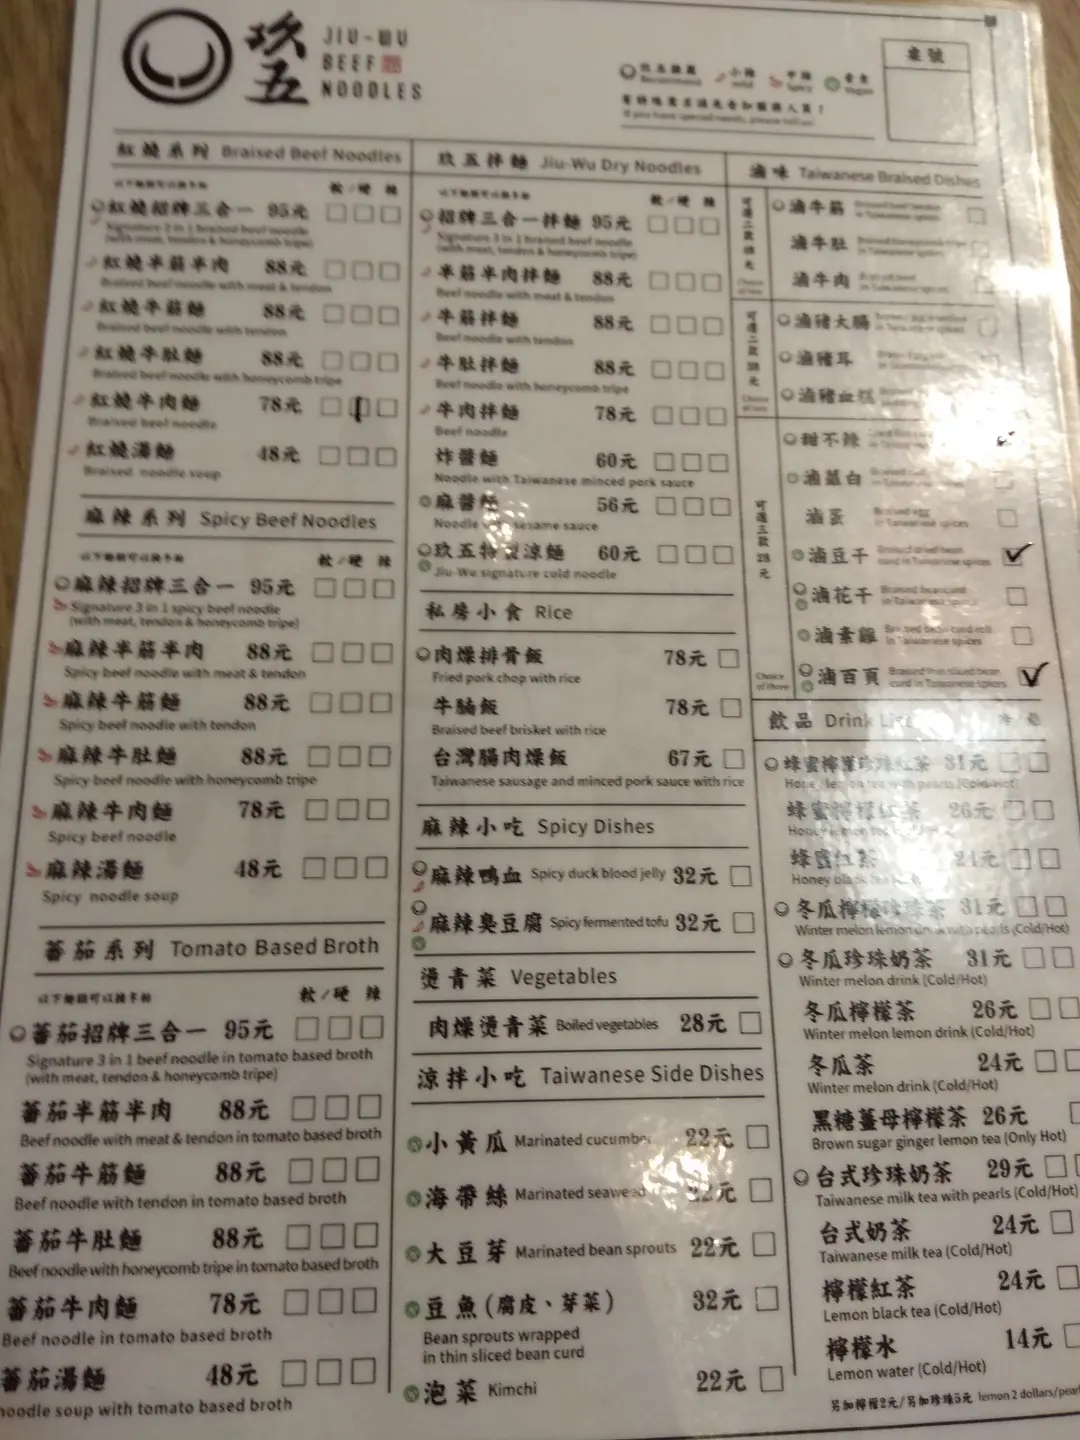 玖五
JIU-WU
BEEF
NOODLES
玖五推薦 Recommend
小辣 mild
中辣 Spicy
素食 Vegan
If you have special needs, please tell us!
桌號
紅燒系列 Braised Beef Noodles
軟/硬 辣
紅燒招牌三合一 95元
Signature 3 in 1 braised beef noodle
(with meat, tendon & honeycomb tripe)
紅燒半筋半肉 88元
Braised beef noodle with meat & tendon
紅燒牛筋麵 88元
Braised beef noodle with tendon
紅燒牛肚麵 88元
Braised beef noodle with honeycomb tripe
紅燒牛肉麵 78元
Braised beef noodle
紅燒湯麵 48元
Braised noodle soup
麻辣系列 Spicy Beef Noodles
軟/硬 辣
麻辣招牌三合一 95元
Signature 3 in 1 spicy beef noodle
(with meat, tendon & honeycomb tripe)
麻辣半筋半肉 88元
Spicy beef noodle with meat & tendon
麻辣牛筋麵 88元
Spicy beef noodle with tendon
麻辣牛肚麵 88元
Spicy beef noodle with honeycomb tripe
麻辣牛肉麵 78元
Spicy beef noodle
麻辣湯麵 48元
Spicy noodle soup
蕃茄系列 Tomato Based Broth
軟/硬 辣
蕃茄招牌三合一 95元
Signature 3 in 1 beef noodle in tomato based broth
(with meat, tendon & honeycomb tripe)
蕃茄半筋半肉 88元
Beef noodle with meat & tendon in tomato based broth
蕃茄牛筋麵 88元
Beef noodle with tendon in tomato based broth
蕃茄牛肚麵 88元
Beef noodle with honeycomb tripe in tomato based broth
蕃茄牛肉麵 78元
Beef noodle in tomato based broth
蕃茄湯麵 48元
noodle soup with tomato based broth
玖五拌麵 Jiu-Wu Dry Noodles
軟/硬 辣
招牌三合一拌麵 95元
Signature 3 in 1 braised beef noodle
(with meat, tendon & honeycomb tripe)
半筋半肉拌麵 88元
Beef noodle with meat & tendon
牛筋拌麵 88元
Beef noodle with tendon
牛肚拌麵 88元
Beef noodle with honeycomb tripe
牛肉拌麵 78元
Beef noodle
炸醬麵 60元
Noodle with Taiwanese minced pork sauce
麻醬 56元
Noodle sesame sauce
玖五特製涼麵 60元
Jiu-Wu signature cold noodle
私房小食 Rice
肉燥排骨飯 78元
Fried pork chop with rice
牛腩飯 78元
Braised beef brisket with rice
台灣腸肉燥飯 67元
Taiwanese sausage and minced pork sauce with rice
麻辣小吃 Spicy Dishes
麻辣鴨血 Spicy duck blood jelly 32元
麻辣臭豆腐 Spicy fermented tofu 32元
燙青菜 Vegetables
肉燥燙青菜 Boiled vegetables 28元
涼拌小吃 Taiwanese Side Dishes
小黃瓜 Marinated cucumber 22元
海帶絲 Marinated seaweed 22元
大豆芽 Marinated bean sprouts 22元
豆魚(腐皮、芽菜) 32元
Bean sprouts wrapped
in thin sliced bean curd
泡菜 Kimchi 22元
滷味 Taiwanese Braised Dishes
滷牛筋
滷牛肚
滷牛肉
滷豬大腸
滷豬耳
滷豬血糕
甜不辣
滷蘿白
滷蛋 Braised egg in Taiwanese spices
滷豆干 Braised dried bean curd in Taiwanese spices
滷花干
滷素雞 Braised bean curd roll in Taiwanese spices
滷百頁 Braised thin sliced bean curd in Taiwanese spices
可選三款28元
Choice of three
飲品 Drink List
蜂蜜檸檬珍珠紅茶 31元
Honey lemon tea with pearls (Cold/Hot)
蜂蜜檸檬紅茶 26元
Honey lemon tea
蜂蜜紅茶 24元
Honey black tea
冬瓜檸檬珍珠茶 31元
Winter melon lemon drink with pearls (Cold/Hot)
冬瓜珍珠奶茶 31元
Winter melon drink (Cold/Hot)
冬瓜檸檬茶 26元
Winter melon lemon drink (Cold/Hot)
冬瓜茶 24元
Winter melon drink (Cold/Hot)
黑糖薑母檸檬茶 26元
Brown sugar ginger lemon tea (Only Hot)
台式珍珠奶茶 29元
Taiwanese milk tea with pearls (Cold/Hot)
台式奶茶 24元
Taiwanese milk tea (Cold/Hot)
檸檬紅茶 24元
Lemon black tea (Cold/Hot)
檸檬水 14元
Lemon water (Cold/Hot)
另加檸檬2元/另加珍珠5元 lemon 2 dollars/pearl